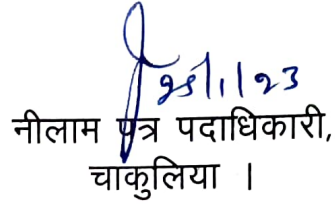 25/1/23
नीलाम पत्र पदाधिकारी,
चाकुलिया ।